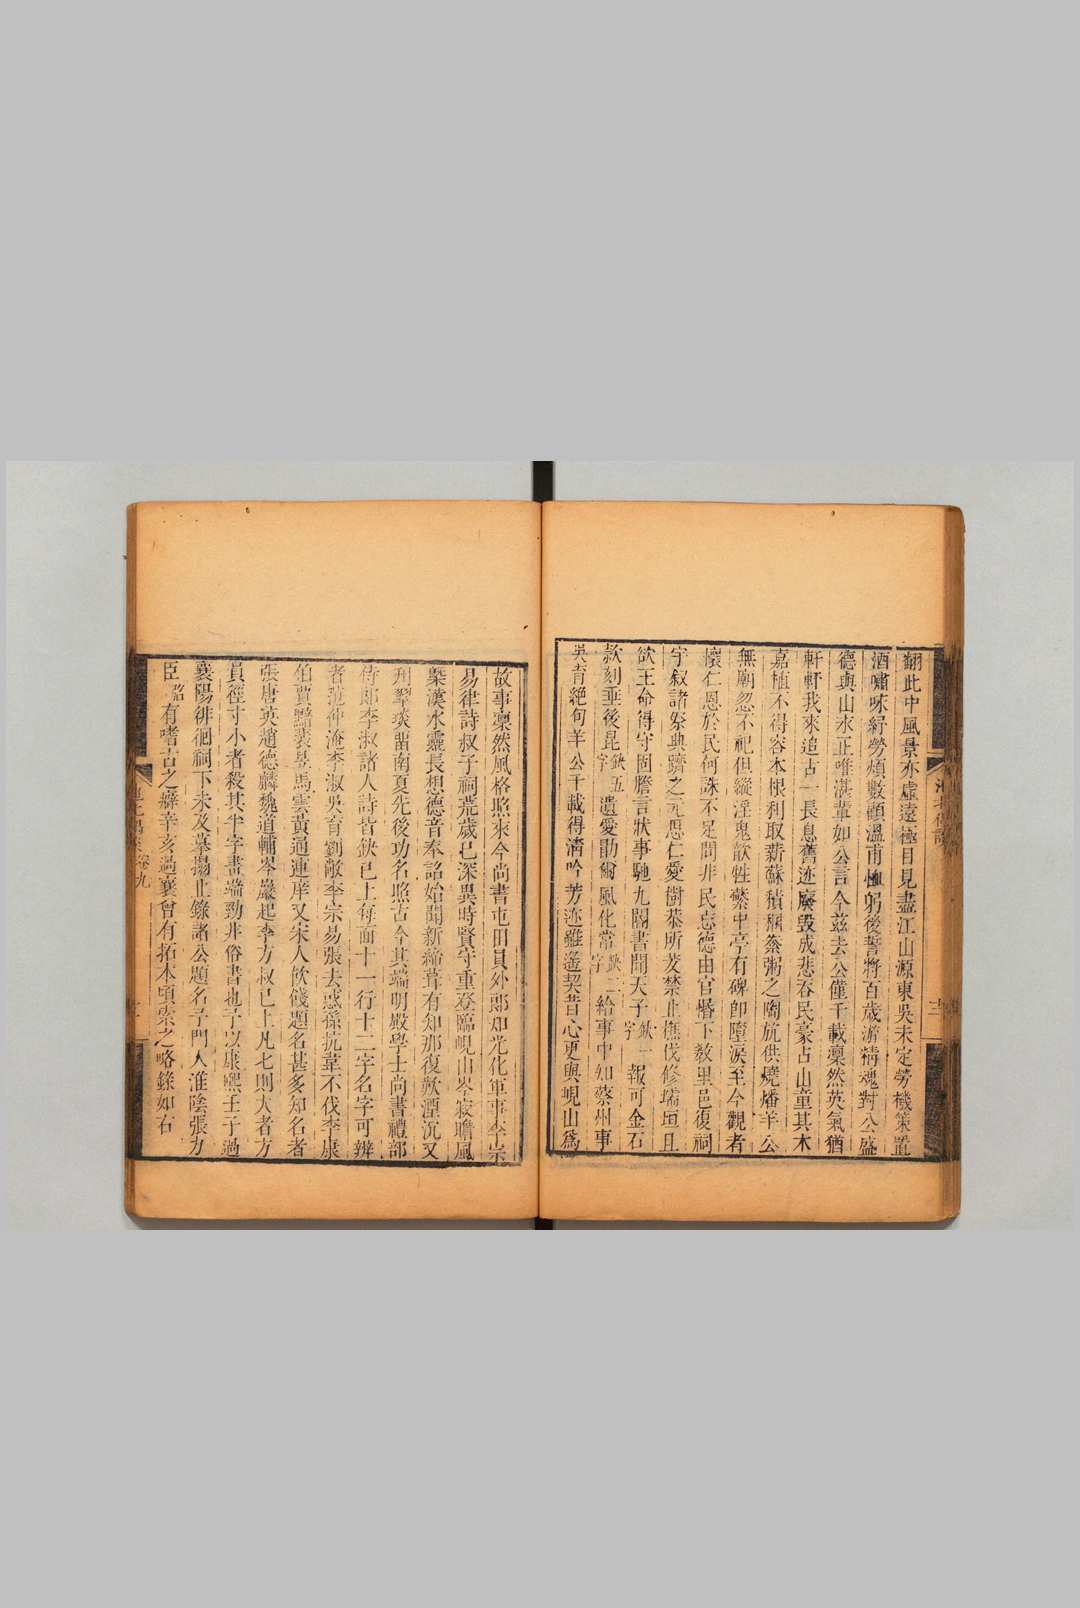 翻此中風景亦虛遠極目見盡江山源東吳未定勞機策置
酒嘯咏紓勞煩數顧溫甫恤躬後誓將百歲游精魂對公盛
德與山水正唯湛輩如公言今茲去公僅千載凜然英氣猶
軒軒我來追古一長息舊迹廢毀成悲吞民豪占山童其木
嘉植不得容本根利取薪蘇積稱蔡粥之陶旊供燒燔羊公
無廟忽不祀但縱淫鬼歆牲蘩中亭有碑卽墮淚至今觀者
懷仁恩於民何誅不足問非民忘德由官惛下敎里邑復祠
宇叙諸祭典躋之元思仁愛樹恭所茇禁止樵伐修壖垣且
欲王命得守固膽言狀事馳九閽書聞天子缺一字報可金石
款刻垂後昆缺五字遺愛勖爾風化常缺二字給事中知蔡州事
吳育絕句羊公千載得淸吟芳迹雖遙契昔心更與峴山爲
故事凜然風格照來今尚書屯田員外郞知光化軍事李宗
易律詩叔子祠荒歲已深異時賢守重登臨峴山岑寂瞻風
槩漢水靈長想德音奉詔始聞新締葺有知那復歎湮沉又
刑翠琰畱南夏先後功名照古今其端明殿學士尚書禮部
侍郞李淑諸人詩皆缺已上每面十一行十二字名字可辨
者范仲淹李淑吳育劉敞李宗易張去惑孫抗葦不伐李康
伯賈黯裴昱馬雲黃通連庠又宋人飮餞題名甚多知名者
張唐英趙德麟魏道輔岑巖起李方叔已上凡七則大者方
員徑寸小者殺其半字畫端勁非俗書也予以康熙壬子過
襄陽徘徊祠下未及摹搨止錄諸公題名予門人淮陰張力
臣弨有嗜古之癖辛亥過襄曾有拓本頃索之略錄如右
卷九